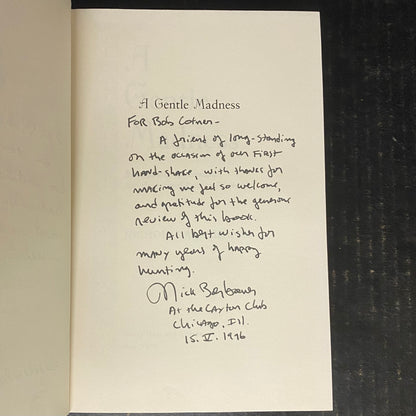 A Gentle Madness
For Bob Cotner-
A friend of long-standing
on the occasion of our first
hand-shake, with thanks for
making me feel so welcome,
and gratitude for the generous
review of this book.
All best wishes for
many years of happy
hunting.
Nick Basbanes
At the Caxton Club
Chicago, Ill.
15. V. 1996